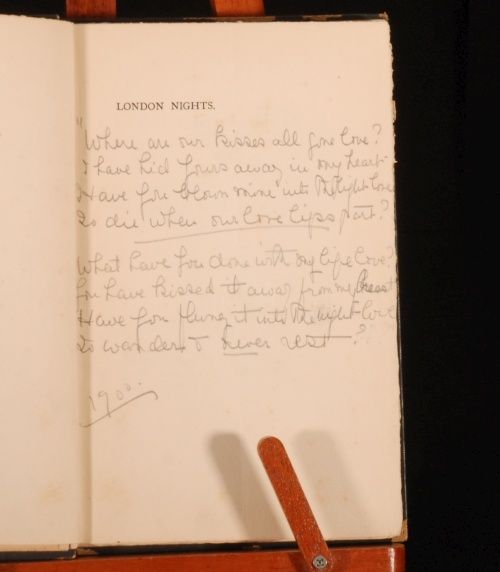 LONDON NIGHTS.
"Where are our kisses all gone love?
I have hid yours away in my heart
Have you blown mine into the night love
To die when our love lips part?
What have you done with my life love?
You have kissed it away from my breast
Have you flung it into the night love
To wander & never rest?
1900.